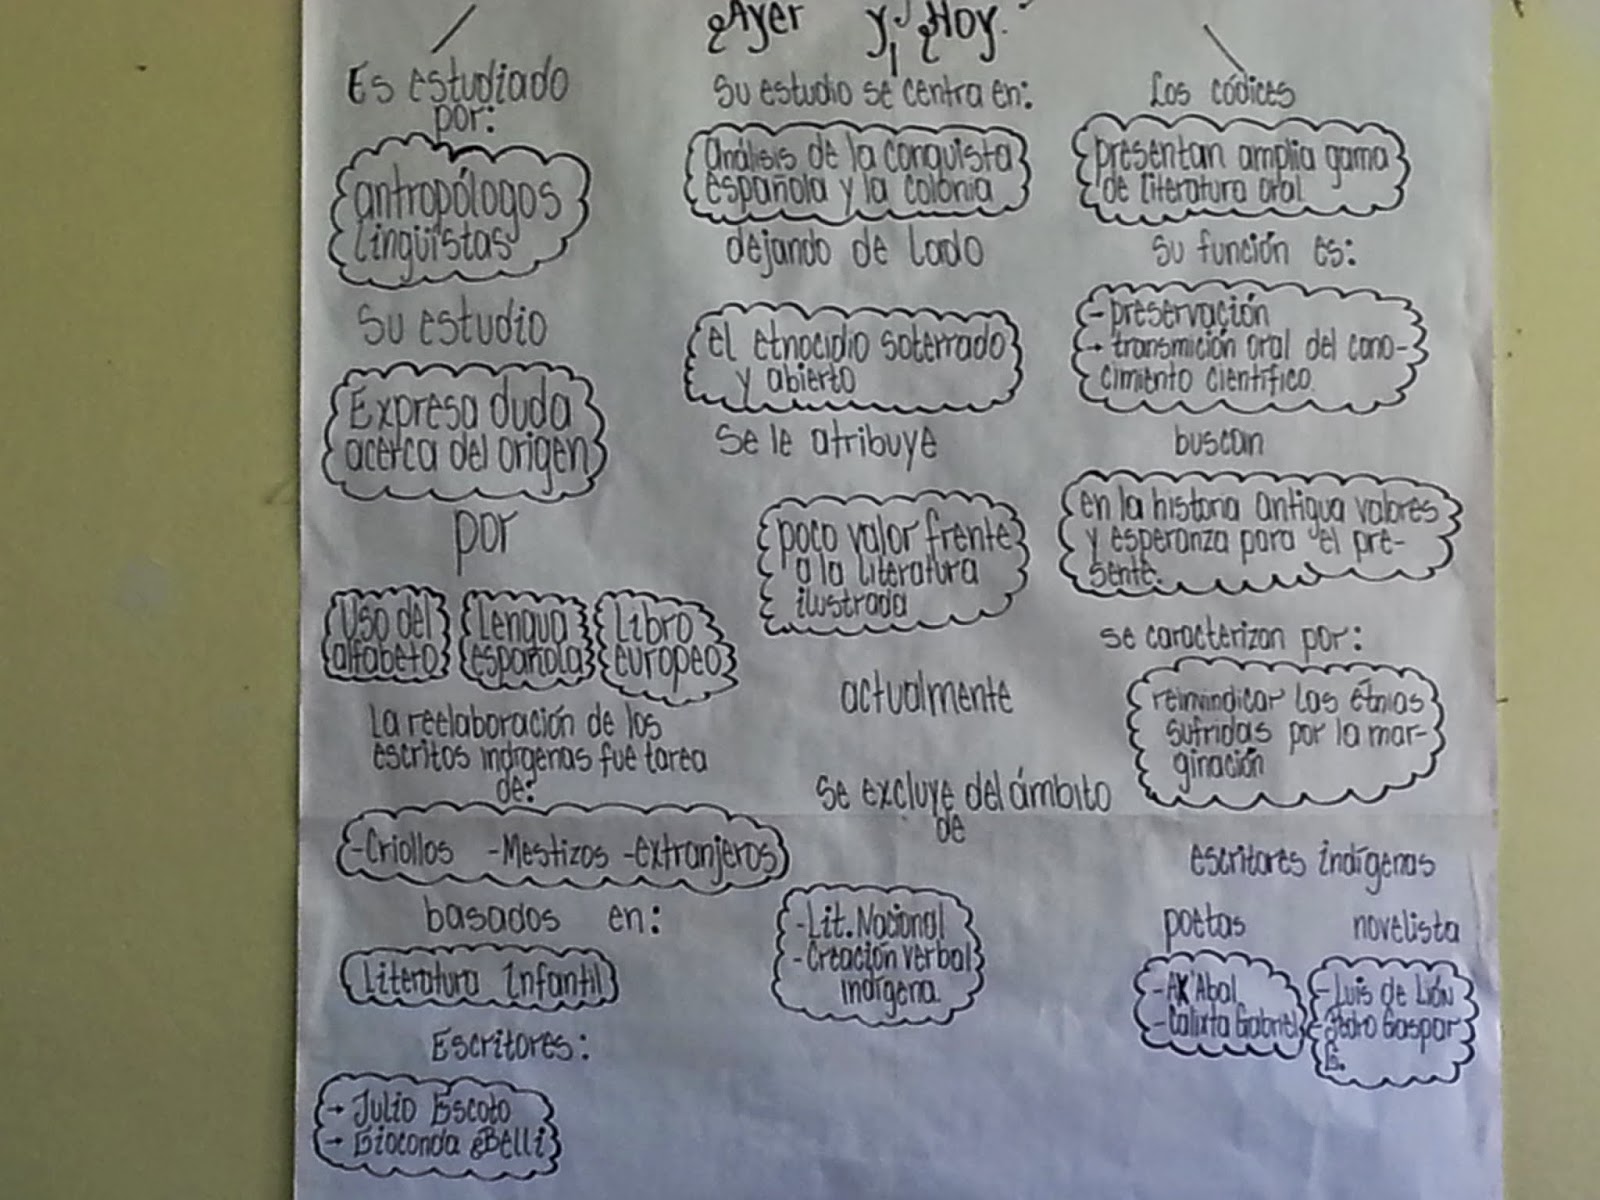 Ayer y Hoy.
Es estudiado
por:
antropólogos
lingüistas
Su estudio
Expresa duda
acerca del origen
por
Uso del
alfabeto
Lengua
española
Libro
europeo
la reelaboración de los
escritos indígenas fue tarea
de:
-Criollos -Mestizos -extranjeros
basados en:
Literatura Infantil
Escritores:
→ Julio Escoto
→ Gioconda Belli
Su estudio se centra en:
Análisis de la conquista
española y la colonia
dejando de lado
el etnocidio soterrado
y abierto
Se le atribuye
poco valor frente
a la literatura
ilustrada
actualmente
Se excluye del ámbito
de
-Lit. Nacional
-Creación verbal
indígena.
Los códices
presentan amplia gama
de literatura oral
Su función es:
- preservación
→ transmición oral del cono-
cimiento científico.
buscan
en la historia antigua valores
y esperanza para el pre-
sente.
se caracterizan por:
reinvindicar las étnias
sufridas por la mar-
ginación
escritores indígenas
poetas
-AK'Abal
-Calixta Gabriel
novelista
-Luis de Lión
-Gaspar